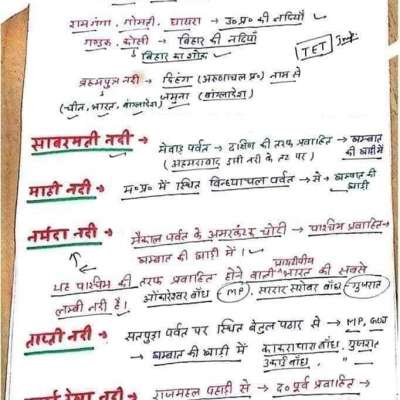 रामगंगा, गोमती, घाघरा → उ०प्र० की नदियाँ
गण्डक, कोसी → बिहार की नदियाँ
बिहार का शोक
TET Imp.
ब्रह्मपुत्र नदी → दिहंग (अरुणाचल प्र०) नाम से
(चीन, भारत, बांग्लादेश) जमुना (बांग्लादेश)
साबरमती नदी → मेवाड़ पर्वत → दक्षिण की तरफ प्रवाहित → खम्बात की खाड़ी में
(अहमदाबाद इसी नदी के तट पर)
माही नदी → म०प्र० में स्थित विन्ध्याचल पर्वत → से → खम्बात की खाड़ी
नर्मदा नदी → मैकाल पर्वत के अमरकंटक चोटी → पश्चिम प्रवाहित →
खम्बात की खाड़ी में।
यह पश्चिम की तरफ प्रवाहित होने वाली प्रायद्वीपीय भारत की सबसे
लम्बी नदी है। ओंकारेश्वर बाँध - MP, सरदार सरोवर बाँध - गुजरात
ताप्ती नदी → सतपुड़ा पर्वत पर स्थित बेतुल पठार से → MP, GUJ
→ खम्बात की खाड़ी में काकरापारा बाँध, गुजरात
उकाई बाँध, " —
रेखा नदी → राजमहल पहाड़ी से → द० पूर्व प्रवाहित →